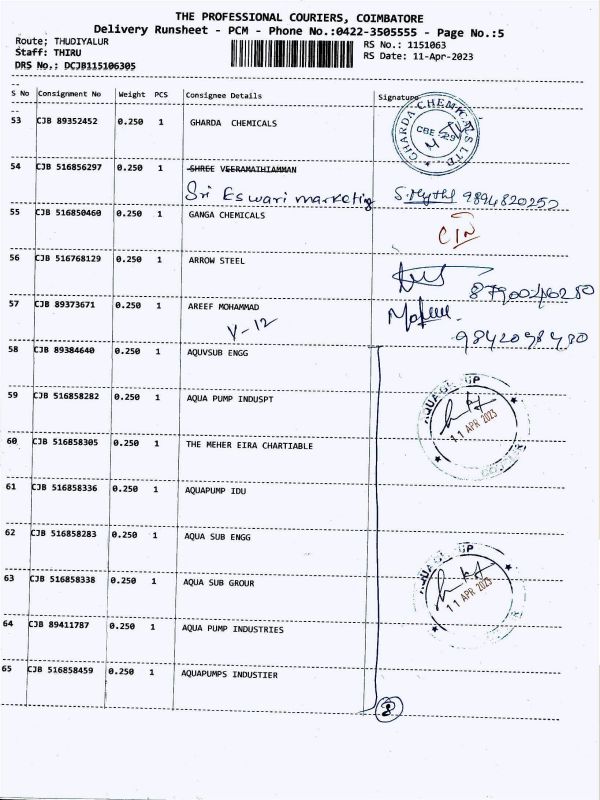 THE PROFESSIONAL COURIERS, COIMBATORE
Delivery Runsheet - PCM - Phone No.:0422-3505555 - Page No.:5
Route; THUDIYALUR
RS No.: 1151063
Staff: THIRU
RS Date: 11-Apr-2023
DRS No.; DCJB115106305
S No Consignment No Weight PCS Consignee Details Signature
53 CJB 89352452 0.250 1 GHARDA CHEMICALS
GHARDA CHEMICALS LTD
CBE - 29
54 CJB 516856297 0.250 1 SHREE VEERAMATHIAMMAN
Sri Eswari marketing 9894820250
55 CJB 516850460 0.250 1 GANGA CHEMICALS
56 CJB 516768129 0.250 1 ARROW STEEL
57 CJB 89373671 0.250 1 AREEF MOHAMMAD
V-12
58 CJB 89384640 0.250 1 AQUVSUB ENGG
59 CJB 516858282 0.250 1 AQUA PUMP INDUSPT
AQUA GROUP
11 APR 2023
60 CJB 516858305 0.250 1 THE MEHER EIRA CHARTIABLE
61 CJB 516858336 0.250 1 AQUAPUMP IDU
62 CJB 516858283 0.250 1 AQUA SUB ENGG
AQUA GROUP
11 APR 2023
63 CJB 516858338 0.250 1 AQUA SUB GROUR
64 CJB 89411787 0.250 1 AQUA PUMP INDUSTRIES
65 CJB 516858459 0.250 1 AQUAPUMPS INDUSTIER
8